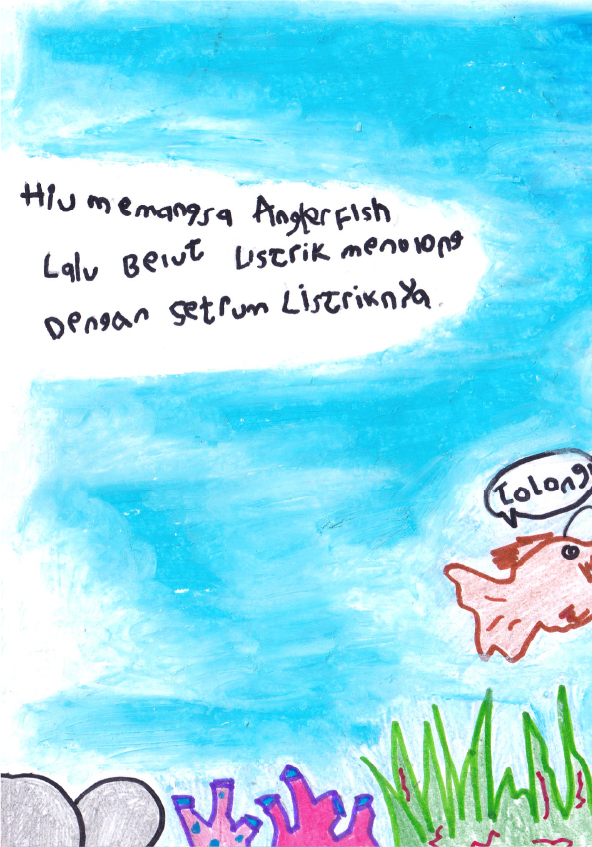 Hiu memangsa Anglerfish
Lalu Belut Listrik menolong
Dengan Setrum Listriknya
Tolong